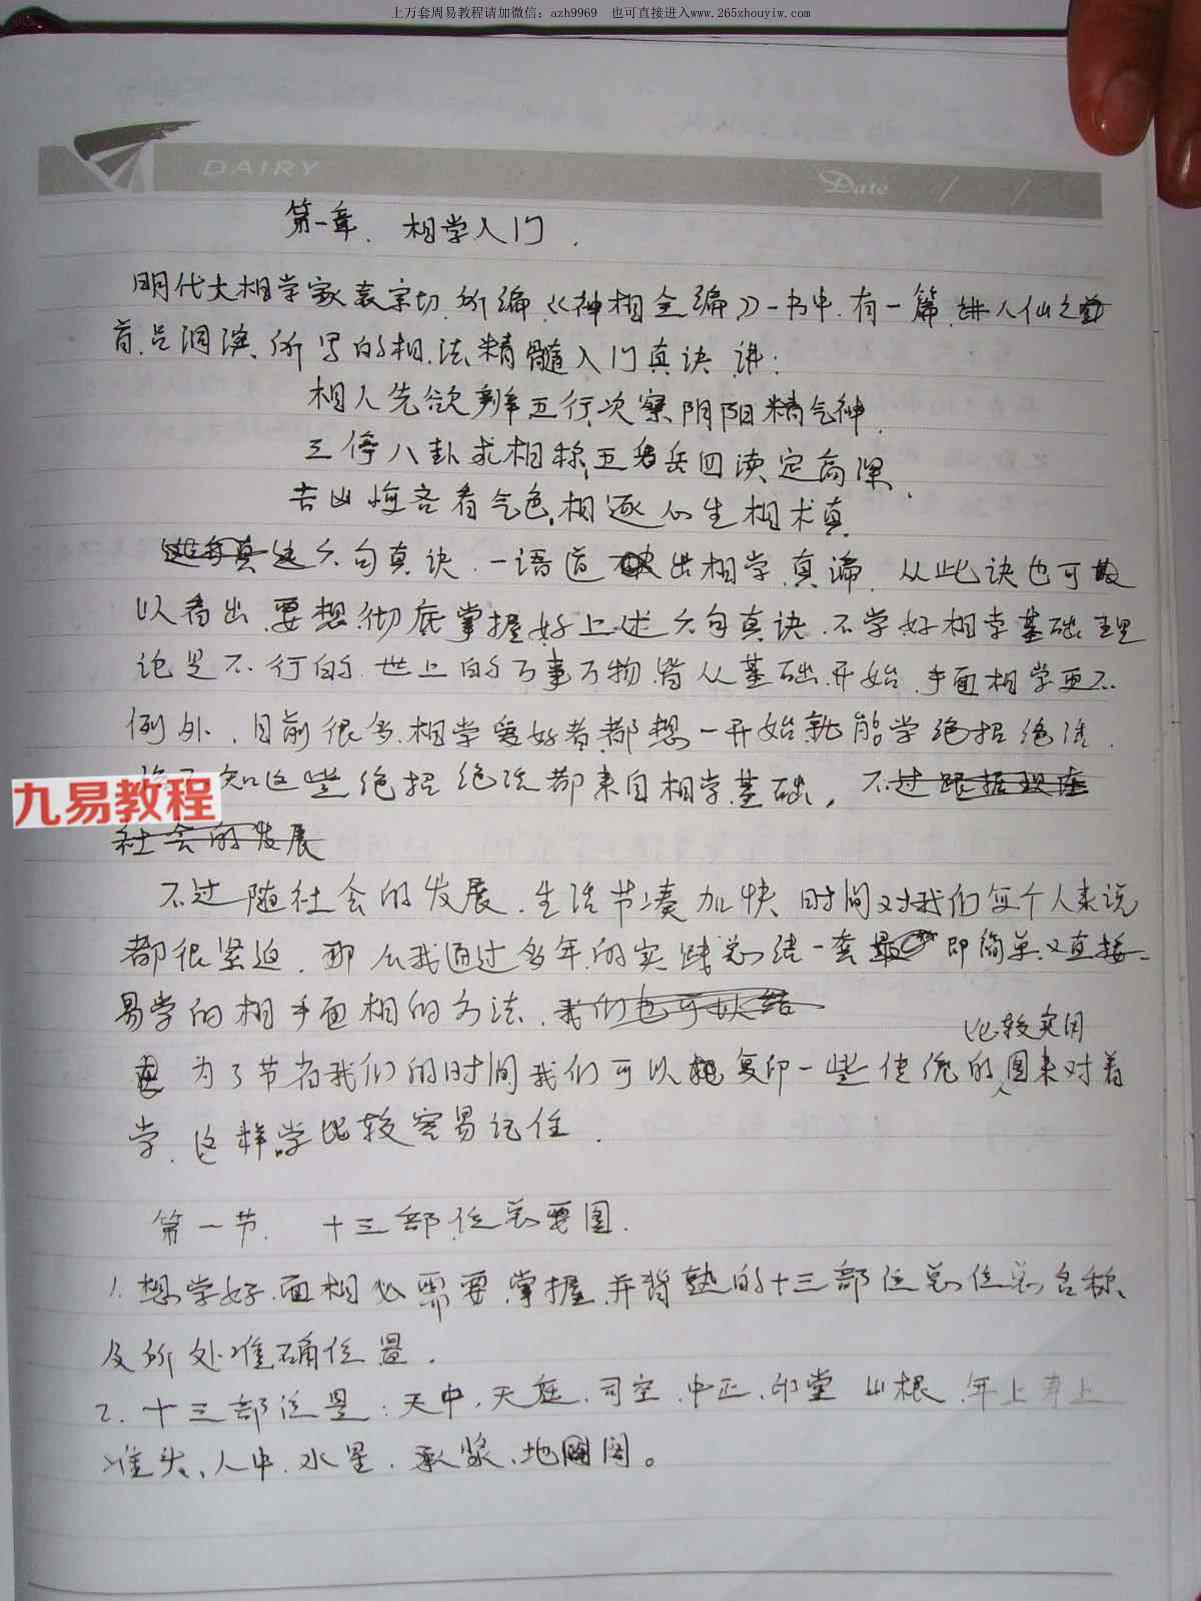 上万套周易教程请加微信：azh9969 也可直接进入www.265zhouyiw.com
DAIRY
Date / /
第一章. 相学入门.
明代大相学家袁宗切.所编《神相全编》一书中.有一篇 八仙之
首.吕洞滨.所写的相.法精髓入门真诀 讲:
相人先欲辨五行,次察阴阳精气神.
三停八卦求相称,五岳四渎定高深,
吉凶悔吝看气色,相逐心生相术真
这六句真诀.一语道出相学.真谛.从此诀也可
以看出.要想彻底掌握好上述六句真诀.不学好相学基础理
论是不行的.世上的万事万物.皆从基础.开始.手面相学更不
例外.目前很多.相学爱好者.都想一开始就能学绝招绝活.
知这些绝招绝活都来自相学.基础, 不过跟据现在
社会的发展
不过随社会的发展.生活节凑加快.时间对我们每个人来说
都很紧迫.那么我通过多年的实践总结一套 即简单又直接
易学的相手面相的方法.我们也可以结
比较实用
为了节省我们的时间我们可以 复印一些传统的图来对着
学.这样学比较容易记住.
第一节. 十三部位总要图.
1.想学好.面相必需要掌握.并背熟的十三部位总位总名称、
及所处准确位置.
2.十三部位是:天中.天庭.司空.中正.印堂 山根 年上寿上
准头、人中.水星.承浆、地阁。
九易教程